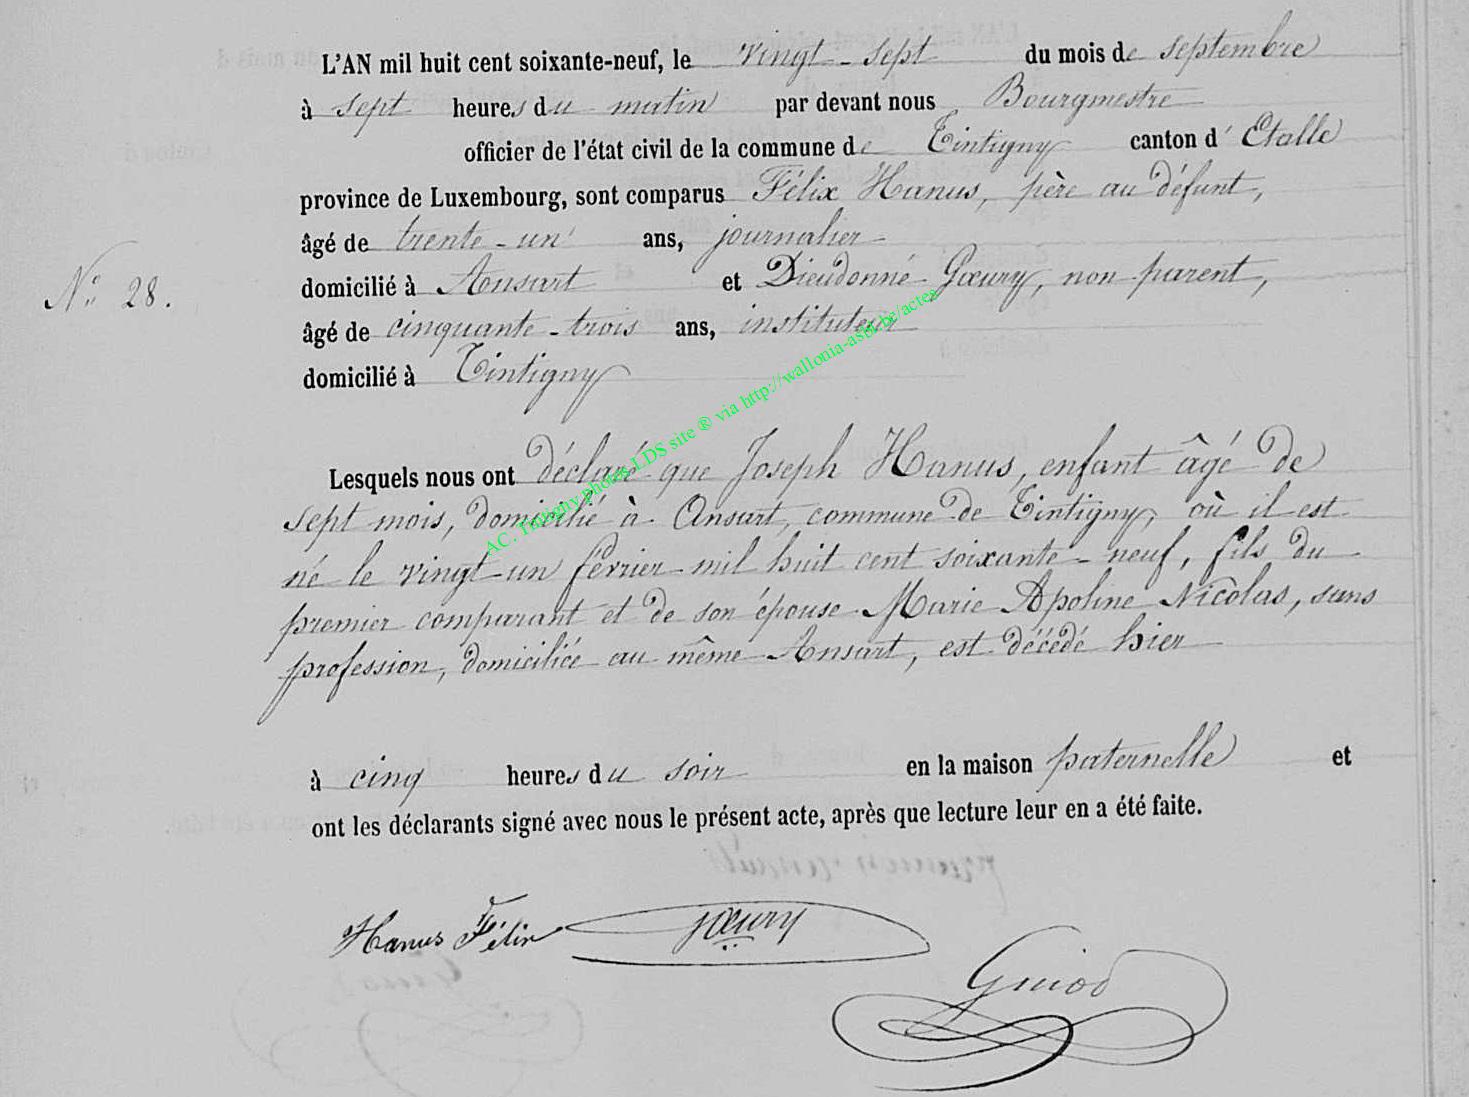 L'AN mil huit cent soixante-neuf, le vingt-sept du mois de septembre
à sept heures du matin par devant nous Bourgmestre
officier de l'état civil de la commune de Tintigny canton d'Etalle
province de Luxembourg, sont comparus Félix Hanus, père au défunt,
âgé de trente-un ans, journalier
N° 28.
domicilié à Ansart et Dieudonné Gœury, non parent,
âgé de cinquante-trois ans, instituteur
domicilié à Tintigny
AC. Tintigny photos LDS site ® via http://wallonia-asbl.be/actes
Lesquels nous ont déclaré que Joseph Hanus, enfant âgé de
sept mois, domicilié à Ansart, commune de Tintigny, où il est
né le vingt-un février mil huit cent soixante-neuf, fils du
premier comparant et de son épouse Marie Apoline Nicolas, sans
profession, domiciliée au même Ansart, est décédé hier
à cinq heures du soir en la maison paternelle et
ont les déclarants signé avec nous le présent acte, après que lecture leur en a été faite.
Hanus Félix Gœury
Guiod